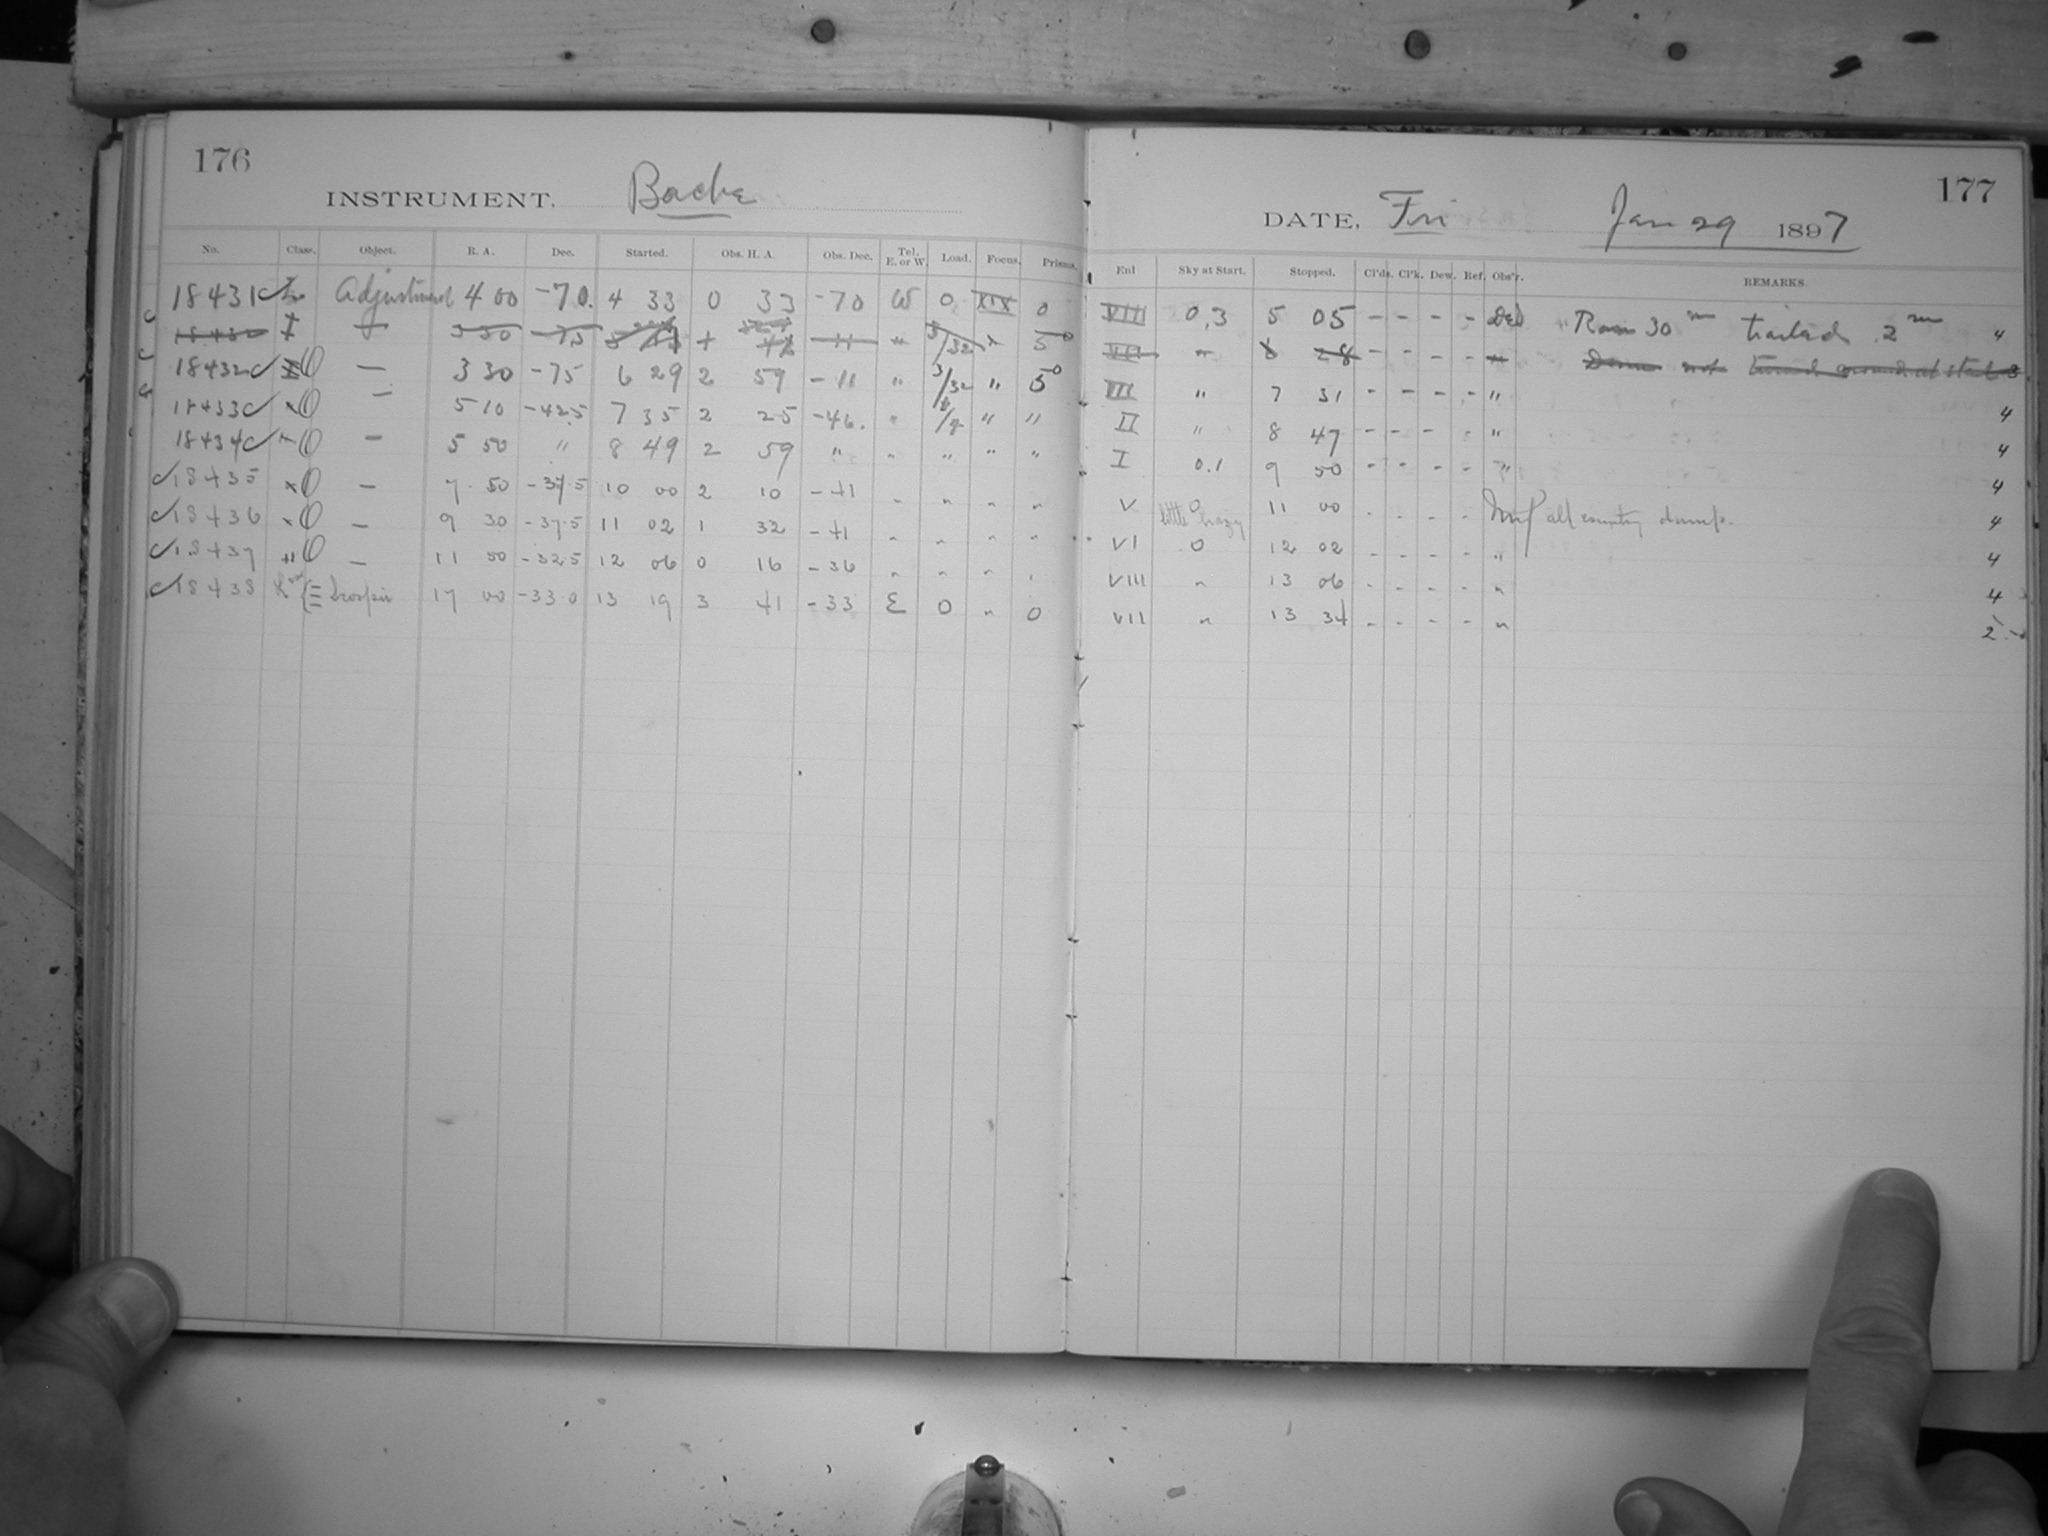 176
INSTRUMENT. Bache
No. Class. Object. R. A. Dec. Started. Obs. H. A. Obs. Dec. Tel. E. or W. Load. Focus. Prisms.
18431 c L Adjustment 4 00 -70. 4 33 0 33 -70 W 0 XIX 0
18432 I 3 30 -75 + " " 3/32 " 5°
18432 c X O — 3 30 -75 6 29 2 59 -11 " 3/32 " 5°
18433 c X O — 5 10 -42.5 7 35 2 25 -46. " " "
18434 c X O — 5 50 " 8 49 2 59 " " " " "
c 18435 X O — 7 50 -37.5 10 00 2 10 -41 " " " "
c 18436 X O — 9 30 -37.5 11 02 1 32 -41 " " " "
c 18437 " O — 11 50 -32.5 12 06 0 16 -36 " " " "
c 18438 17 00 -33.0 13 19 3 41 -33 E 0 " 0
177
DATE, Fri Jan 29 1897
Enl Sky at Start. Stopped. Cl'ds. Cl'k. Dew. Ref. Obs'r. REMARKS.
VII 0.3 5 05 - - - - Ran 30 m trailed 2 m 4
VII " 28 - - - - " not turned around at start 3
VII " 7 31 - - - - " 4
II " 8 47 - - - - " 4
I 0.1 9 50 - - - - " 4
V 0 11 00 - - - - all country damp. 4
little hazy
VI 0 12 02 - - - - " 4
VIII " 13 06 - - - - " 4
VII " 13 34 - - - - " 2